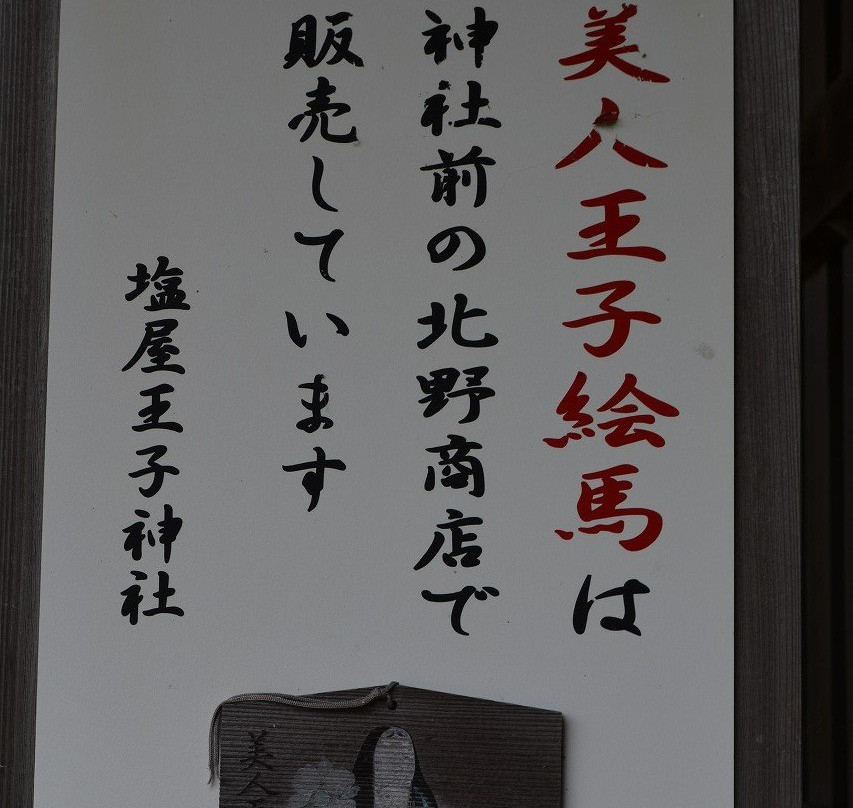 美人王子絵馬は
神社前の北野商店で
販売しています
塩屋王子神社
美人王